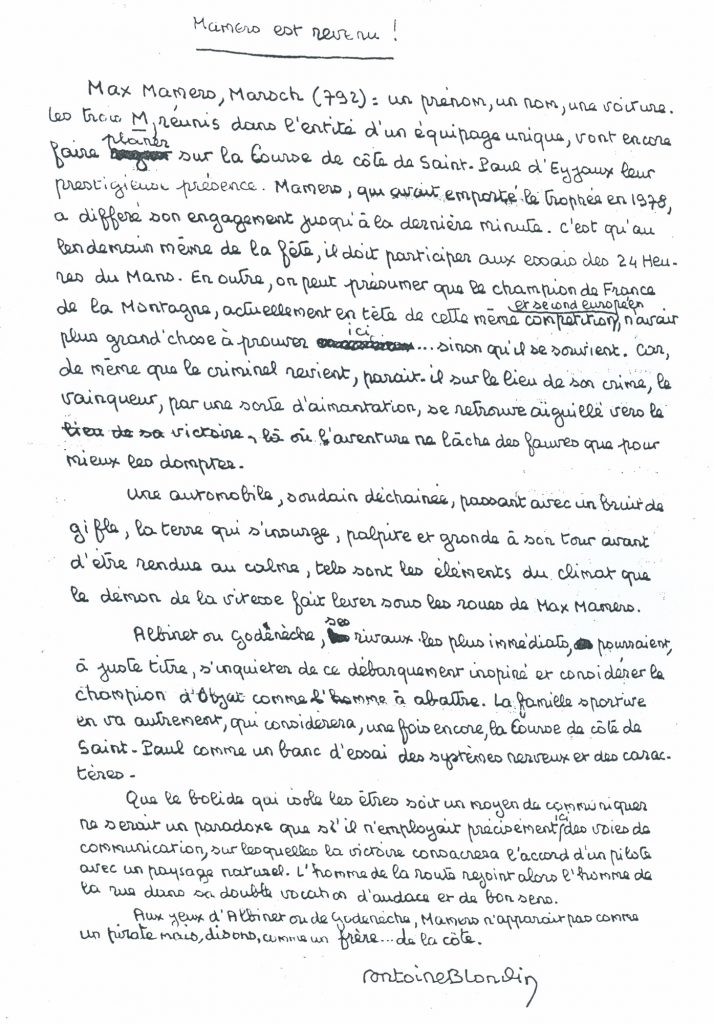 Mamers est revenu !
Max Mamers, Marsch (792) : un prénom, un nom, une voiture.
Les trois M, réunis dans l'entité d'un équipage unique, vont encore
planer
faire sur la Course de côte de Saint-Paul d'Eyjaux leur
prestigieuse présence. Mamers, qui avait emporté le trophée en 1978,
a différé son engagement jusqu'à la dernière minute. C'est qu'au
lendemain même de la fête, il doit participer aux essais des 24 Heu-
res du Mans. En outre, on peut présumer que le champion de France
et second européen
de la Montagne, actuellement en tête de cette même compétition, n'avait
ici
plus grand'chose à prouver ... sinon qu'il se souvient. Car,
de même que le criminel revient, parait-il sur le lieu de son crime, le
vainqueur, par une sorte d'aimantation, se retrouve aiguillé vers le
lieu de sa victoire, là où l'aventure ne lâche des fauves que pour
mieux les dompter.
Une automobile, soudain déchainée, passant avec un bruit de
gifle, la terre qui s'insurge, palpite et gronde à son tour avant
d'être rendue au calme, tels sont les éléments du climat que
le démon de la vitesse fait lever sous les roues de Max Mamers.
ses
Albinet ou Godénèche, rivaux les plus immédiats, pourraient,
à juste titre, s'inquiéter de ce débarquement inopiné et considérer le
champion d'Objat comme l'homme à abattre. La famille sportive
en va autrement, qui considèrera, une fois encore, la Course de côte de
Saint-Paul comme un banc d'essai des systèmes nerveux et des carac-
tères.
Que le bolide qui isole les êtres soit un moyen de communiquer
ici
ne serait un paradoxe que s'il n'employait précisément des voies de
communication, sur lesquelles la victoire consacrera l'accord d'un pilote
avec un paysage naturel. L'homme de la route rejoint alors l'homme de
la rue dans sa double vocation d'audace et de bon sens.
Aux yeux d'Albinet ou de Godénèche, Mamers n'apparait pas comme
un pirate mais, disons, comme un frère... de la côte.
Antoine Blondin